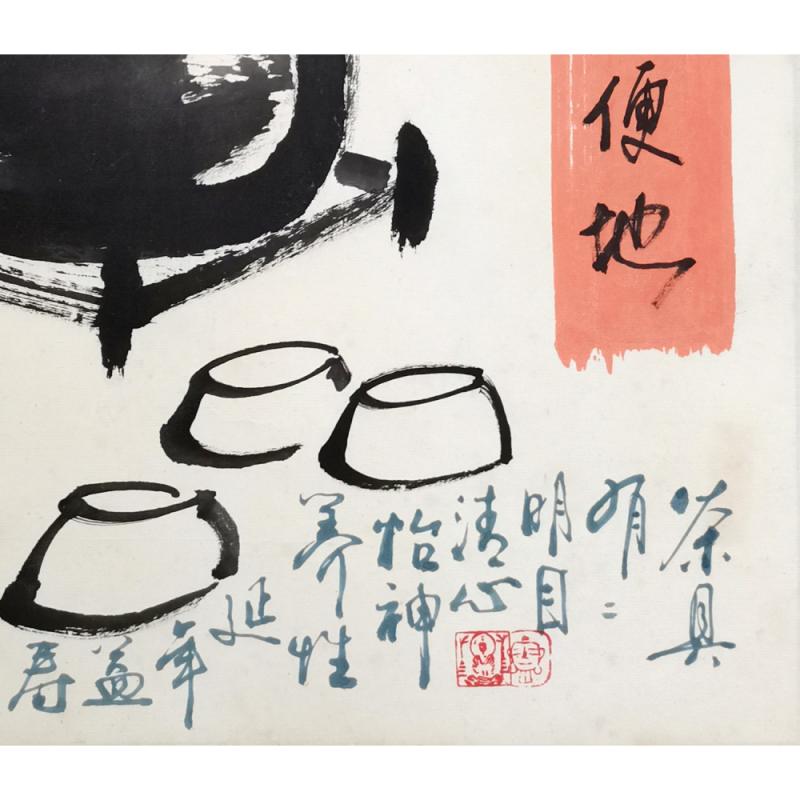 便地
茶具
有二
明目
清心
怡神
养性
延
年
益
寿